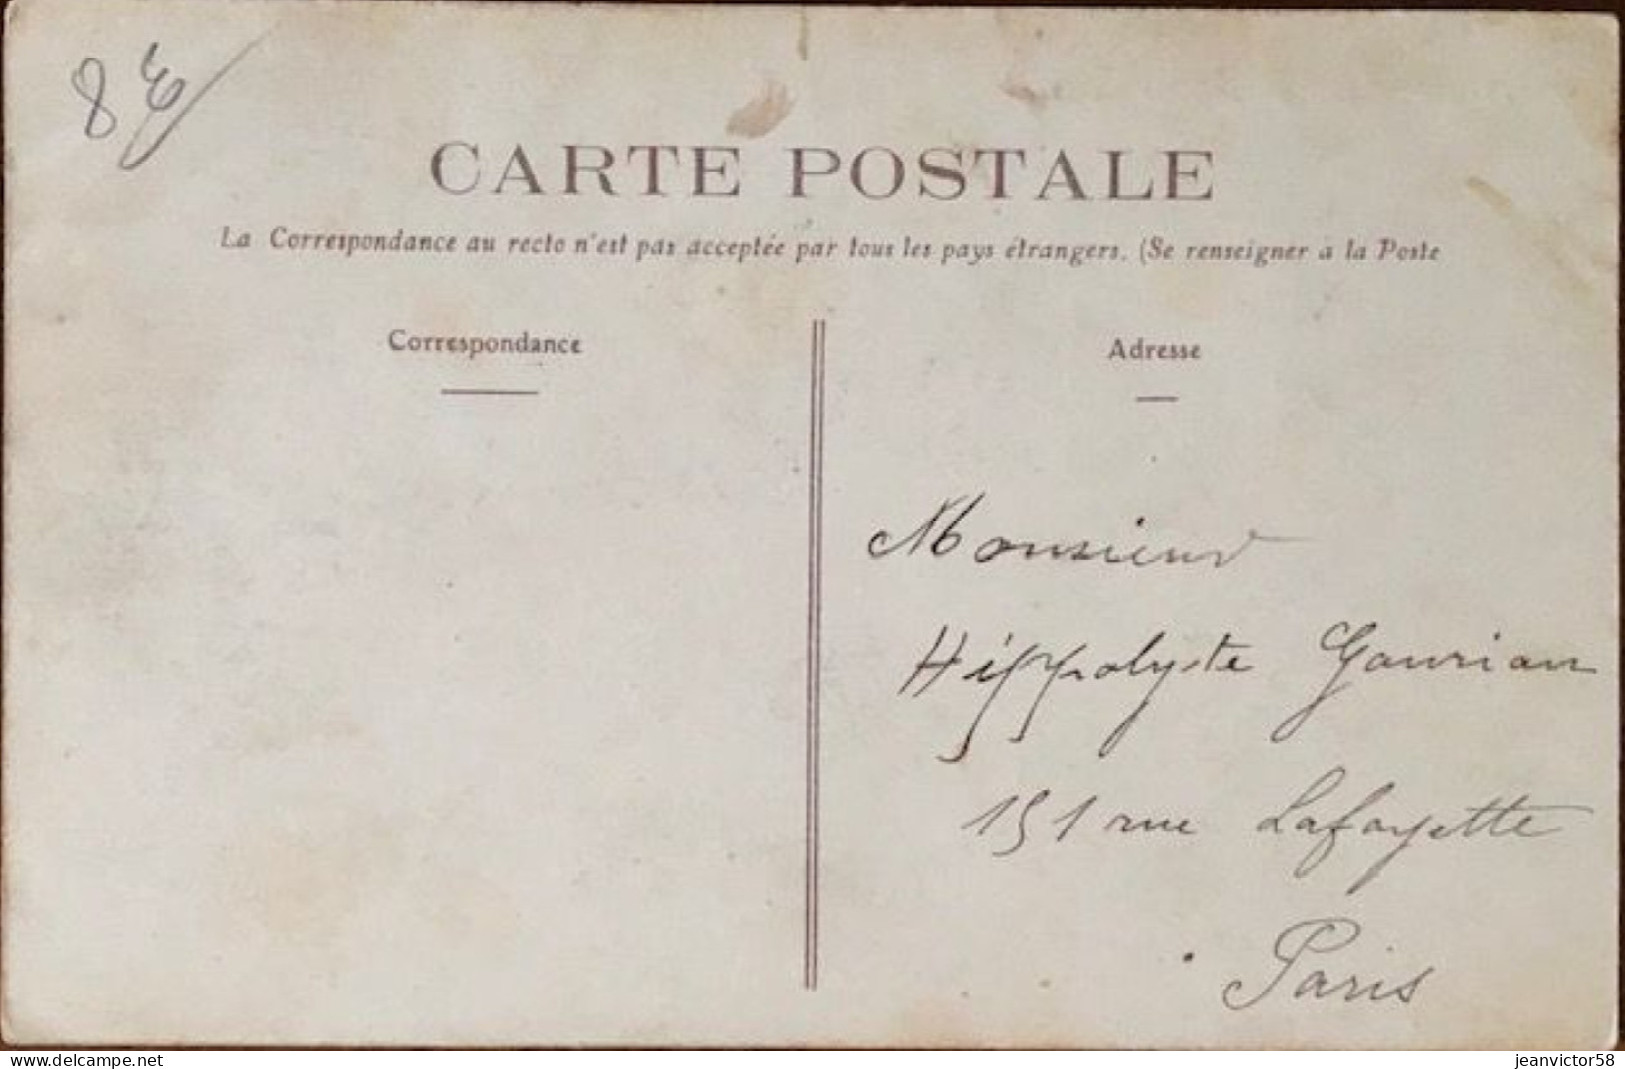 8€
CARTE POSTALE
La Correspondance au recto n'est pas acceptée par tous les pays étrangers. (Se renseigner à la Poste
Correspondance
Adresse
Monsieur
Hippolyte Gourian
151 rue Lafayette
Paris
delcampe.net
jeanvictor58